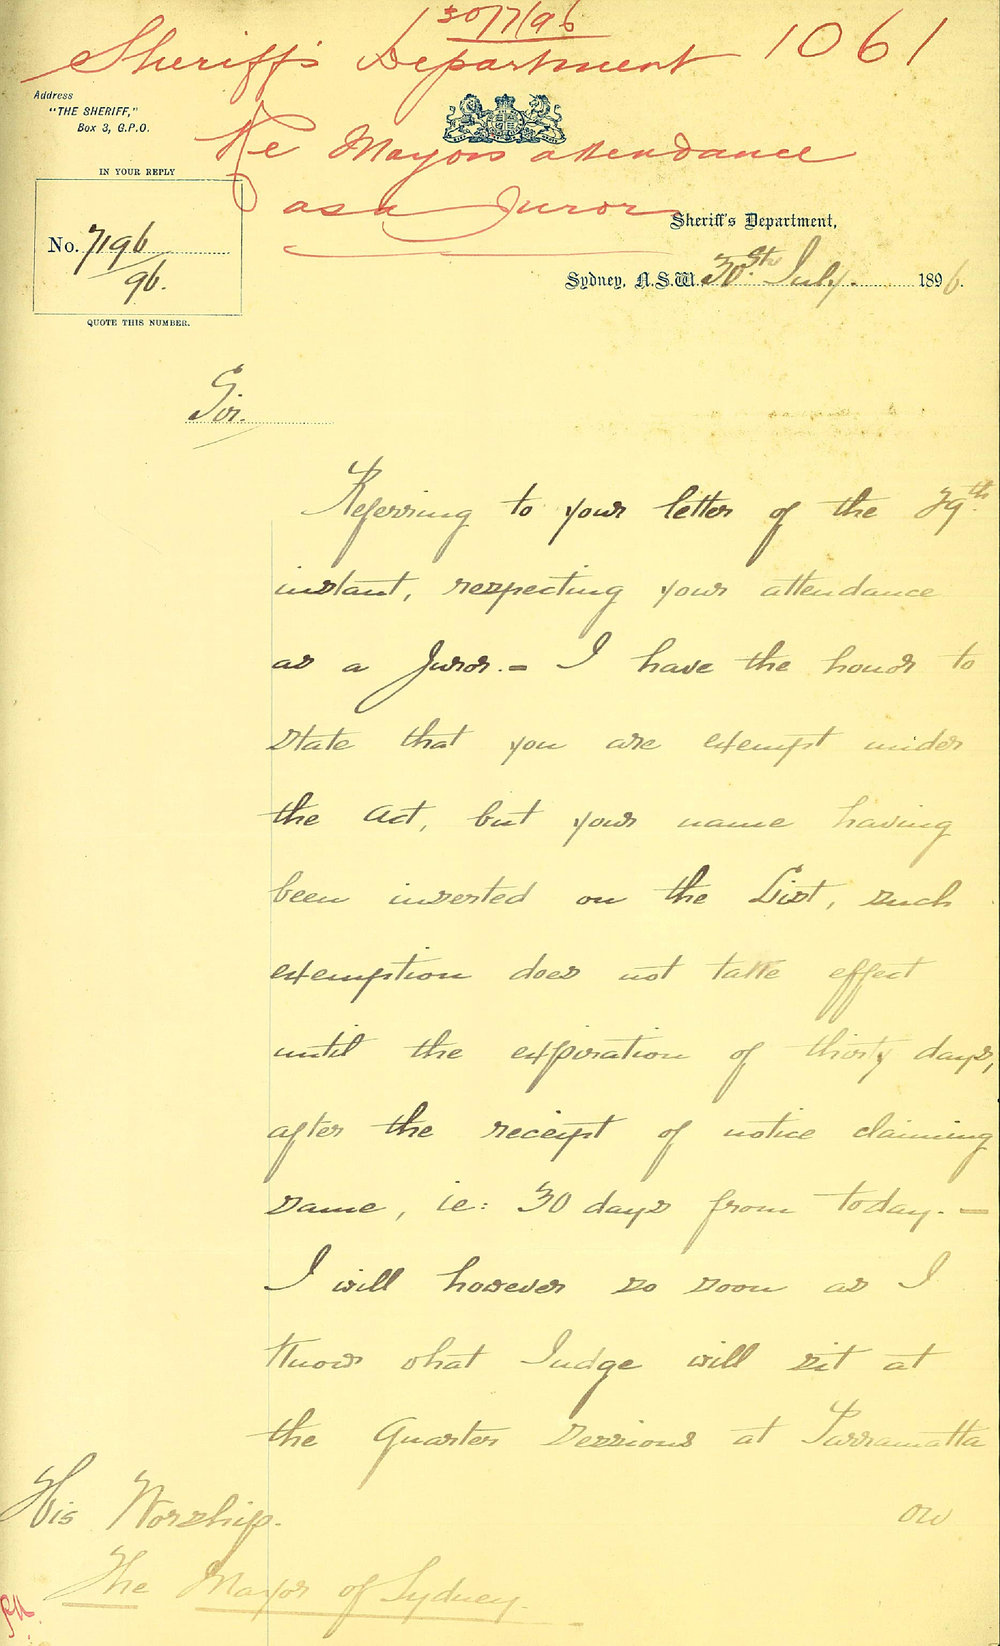 30/7/96
Sheriff's Department 1061
Address
"THE SHERIFF,"
Box 3, G.P.O.
Re Mayors attendance
as a Juror
IN YOUR REPLY
No. 7196
96.
QUOTE THIS NUMBER.
Sheriff's Department,
Sydney, N.S.W. 30th July. 1896.
Sir.
Referring to your letter of the 29th
instant, respecting your attendance
as a Juror. - I have the honor to
state that you are exempt under
the Act, but your name having
been inserted on the List, such
exemption does not take effect
until the expiration of thirty days,
after the receipt of notice claiming
same, ie: 30 days from today. -
I will however so soon as I
know what Judge will sit at
the Quarter Sessions at Parramatta
on
His Worship.
The Mayor of Sydney.